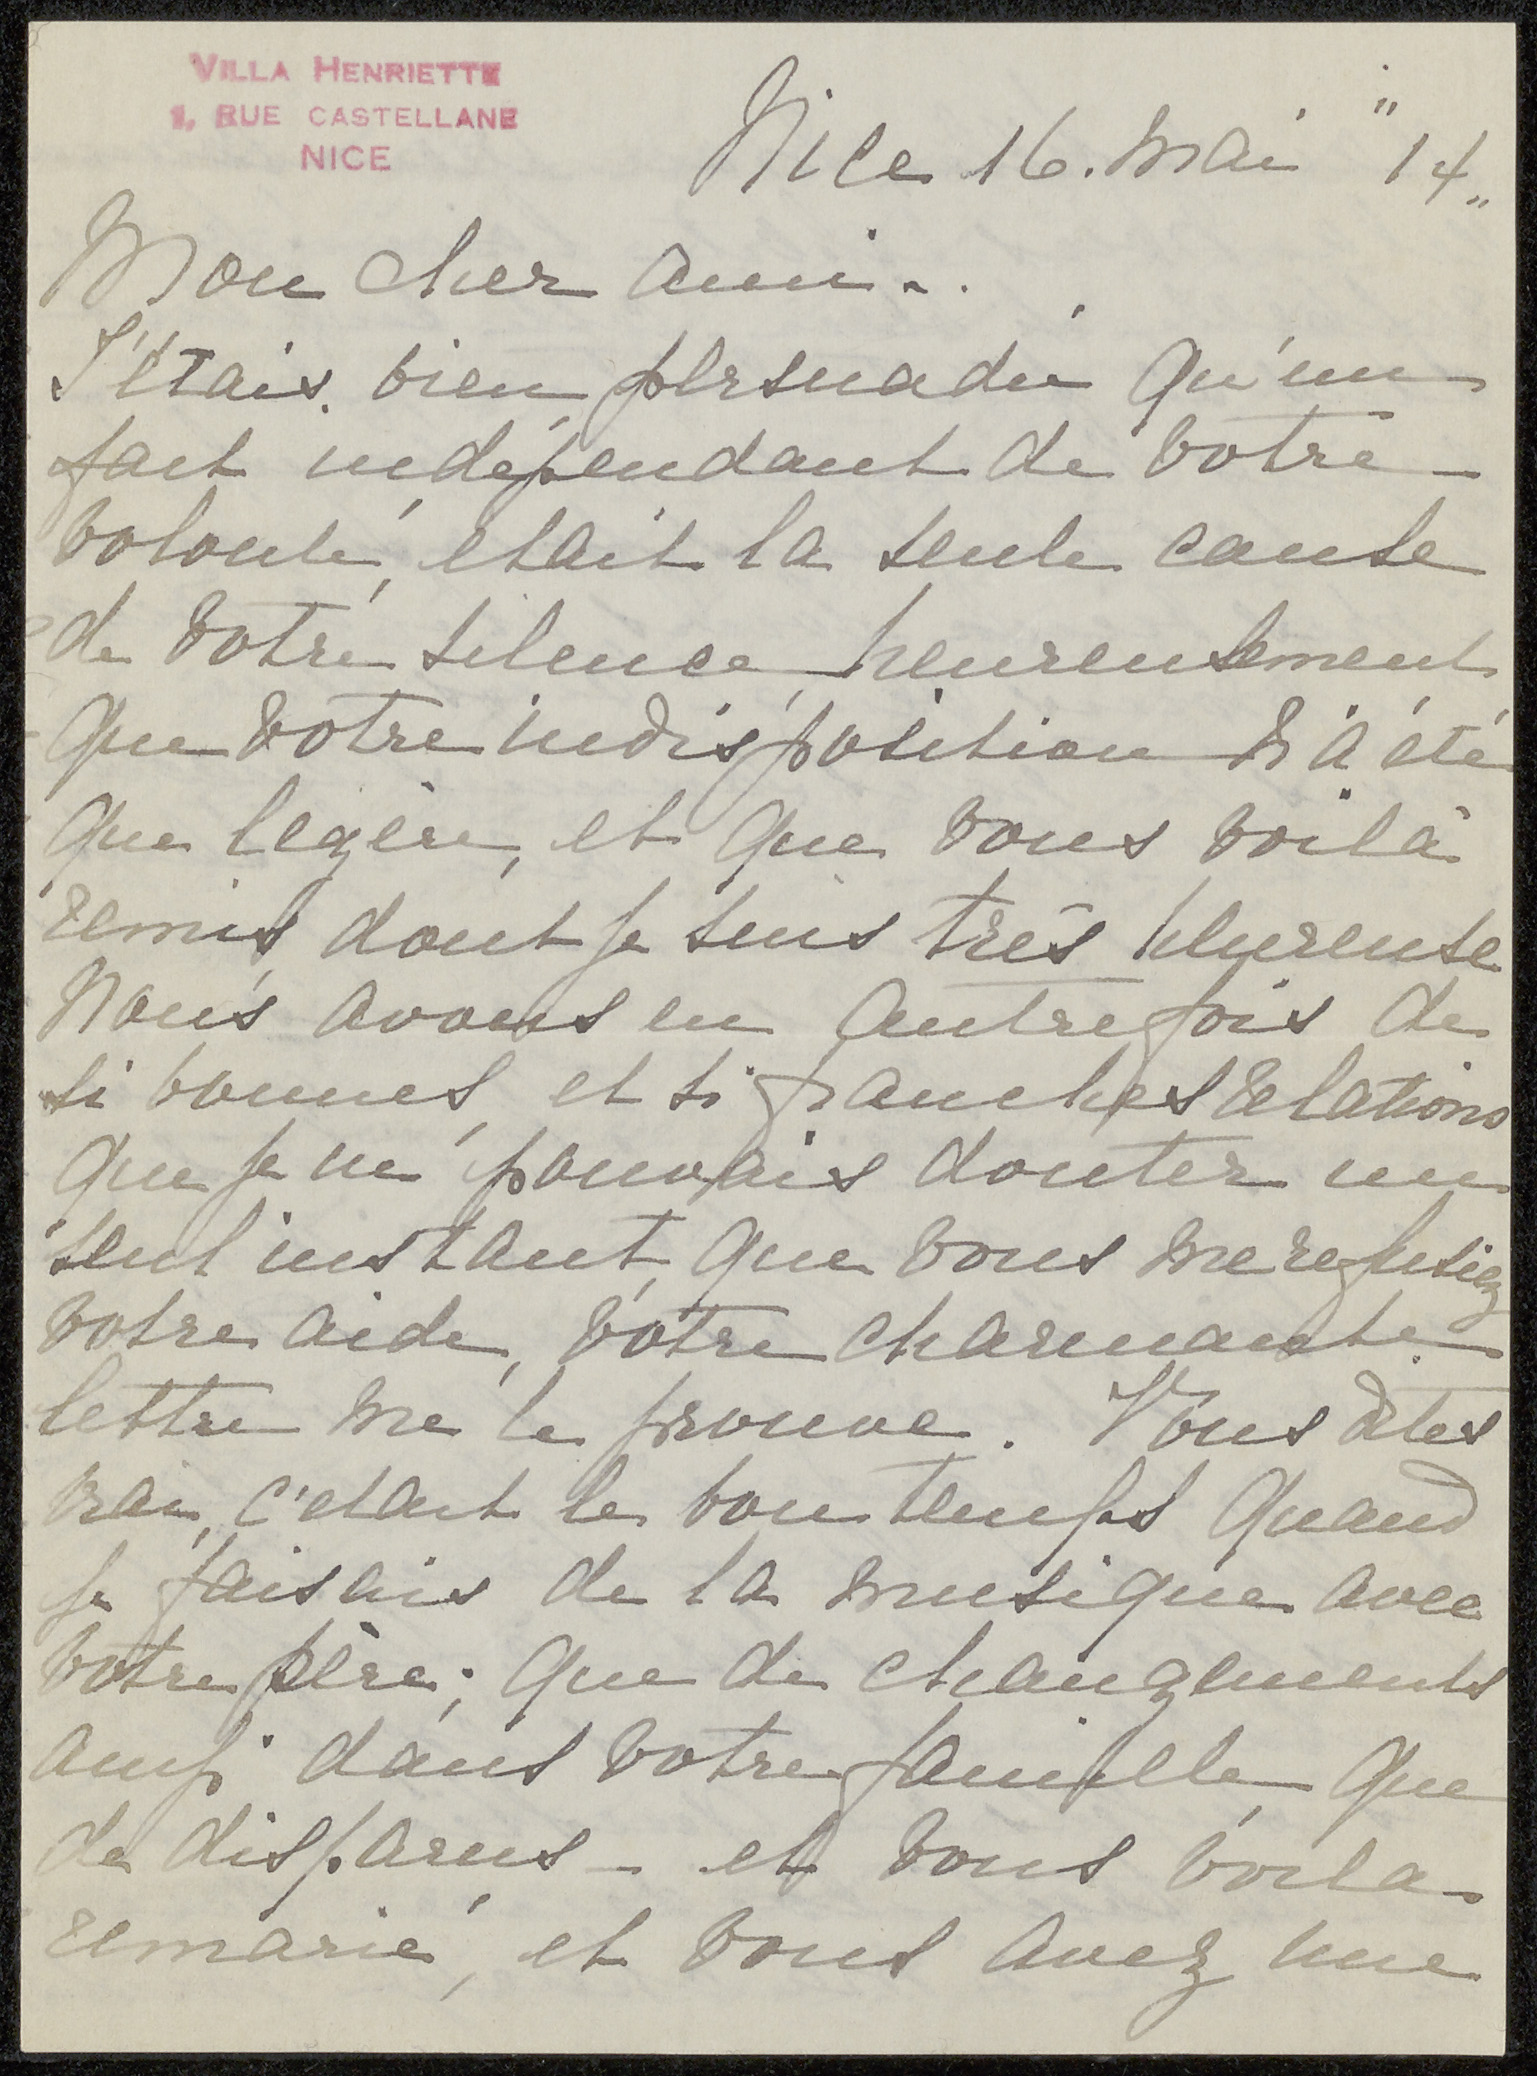 VILLA HENRIETTE
1, RUE CASTELLANE
NICE
Nice 16. Mai "14"
Mon cher ami -.
J'étais bien persuadée qu'un
fait indépendant de votre
volonté, etait la seule cause
de votre silence, heureusement
que votre indisposition n'a été
que legère, et que vous voilà
remis, dont je suis très heureuse
Nous avons eu autrefois de
si bonnes, et si franches relations
que je ne pouvais douter un
seul instant, que vous me refusiez
votre aide, votre charmante
lettre me le prouve. Vous dites
vrai, c'etait le bon temps quand
je faisais de la musique avec
votre père; que de changements
aussi dans votre famille, que
de disparus - et vous voila
remarié, et vous avez une